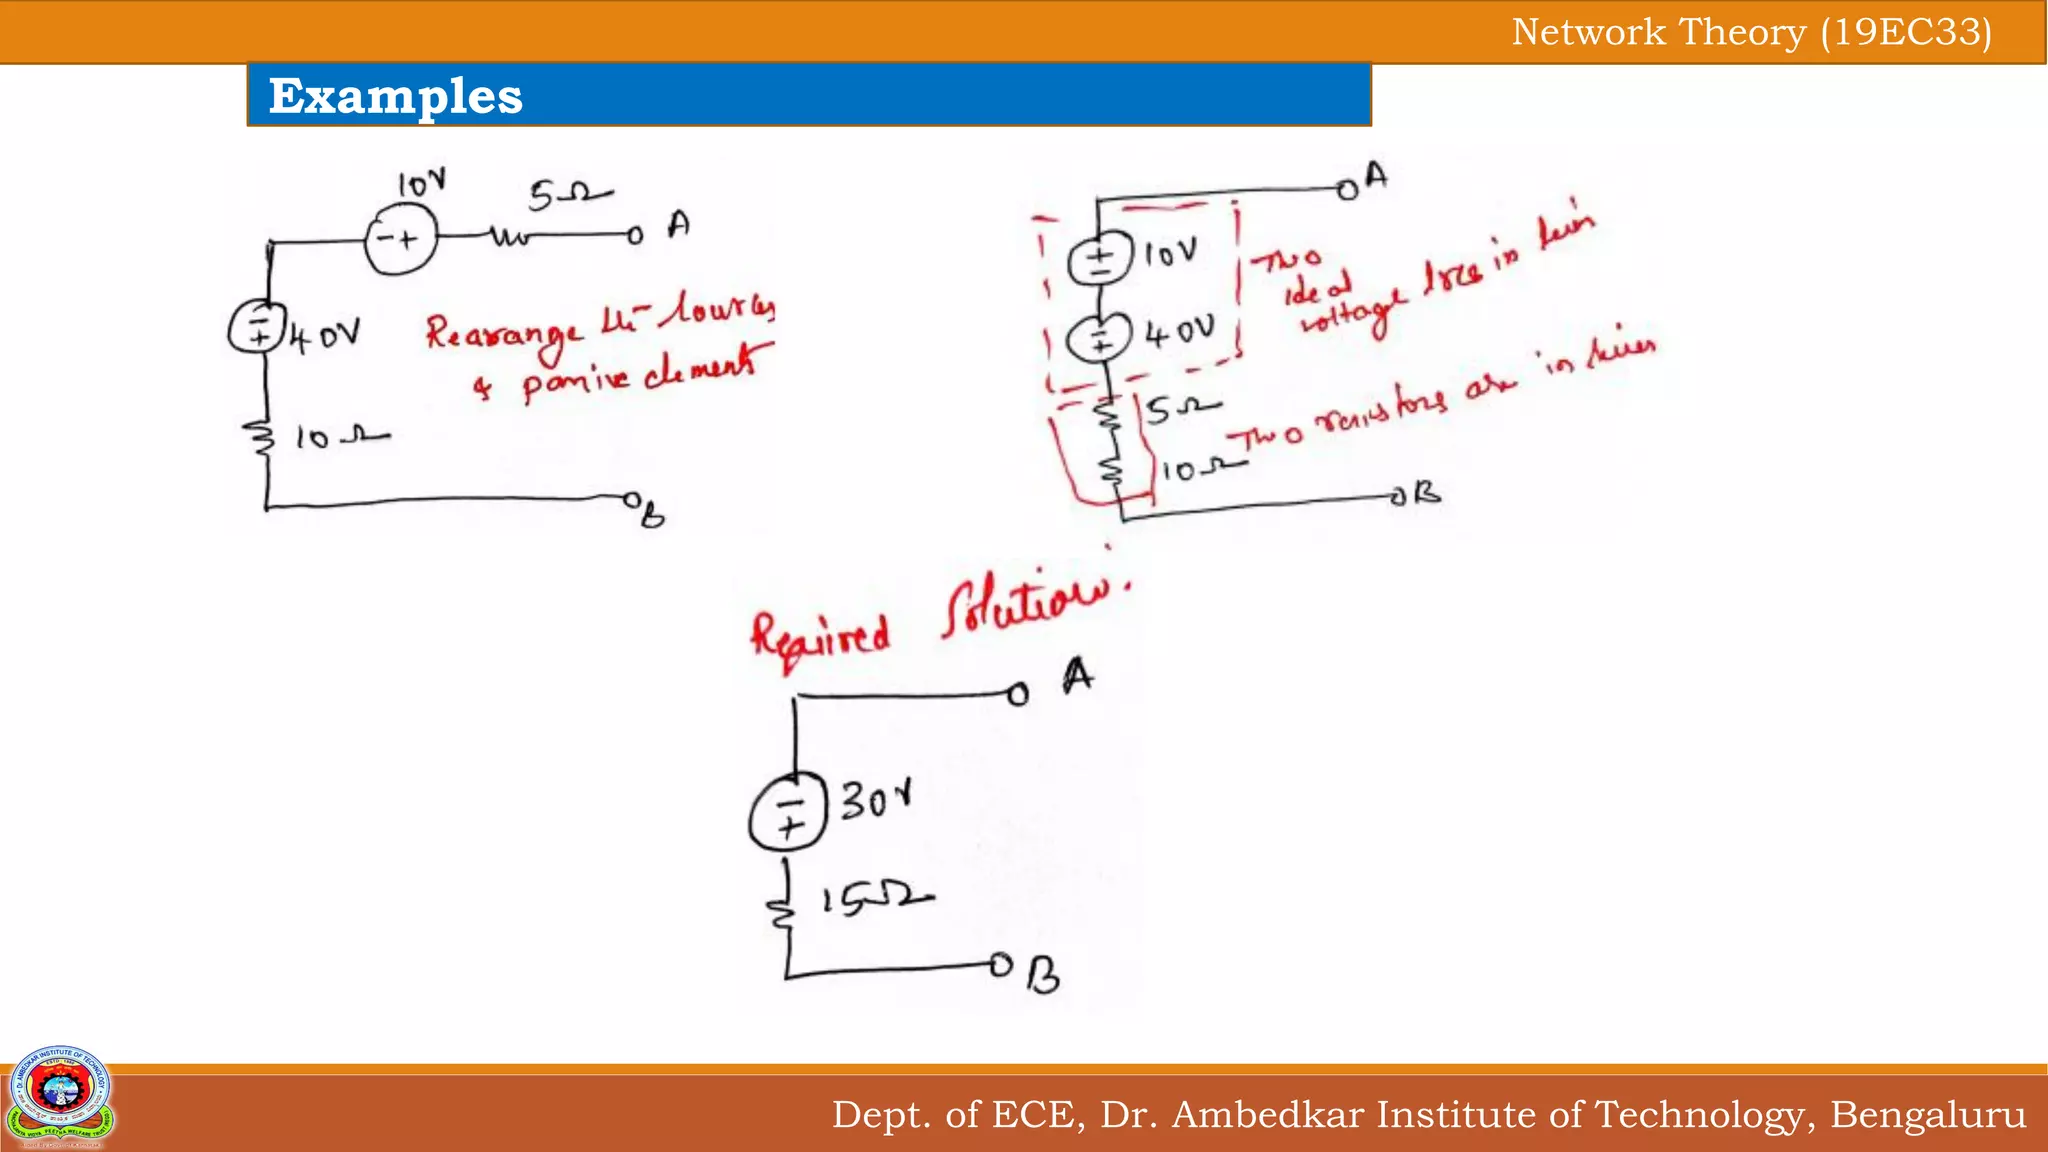 Network Theory (19EC33)
Examples
10V
5Ω
A
- +
- +
40V
Rearange the sources
& passive elements
10Ω
B
A
+ -
10V
- +
40V
Two
ideal
voltage in
5Ω
10Ω
Two resistors are in
B
Required Solution.
A
- +
30V
15Ω
B
Dept. of ECE, Dr. Ambedkar Institute of Technology, Bengaluru